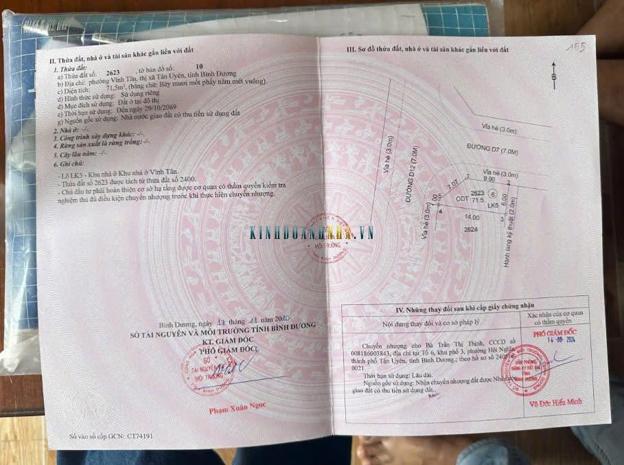 II. Thửa đất, nhà ở và tài sản khác gắn liền với đất
1. Thửa đất:
a) Thửa đất số: 2623, tờ bản đồ số: 10
b) Địa chỉ: phường Vĩnh Tân, thị xã Tân Uyên, tỉnh Bình Dương
c) Diện tích: 71,5m², (bằng chữ: Bảy mươi mốt phẩy năm mét vuông)
d) Hình thức sử dụng: Sử dụng riêng
đ) Mục đích sử dụng: Đất ở tại đô thị
e) Thời hạn sử dụng: Đến ngày 29/10/2069
g) Nguồn gốc sử dụng: Nhà nước giao đất có thu tiền sử dụng đất
2. Nhà ở: -/-.
3. Công trình xây dựng khác: -/-.
4. Rừng sản xuất là rừng trồng: -/-.
5. Cây lâu năm: -/-.
6. Ghi chú:
- Lô LK5 - Khu nhà ở Khu nhà ở Vĩnh Tân.
- Thửa đất số 2623 được tách từ thửa đất số 2400.
- Chủ đầu tư phải hoàn thiện cơ sở hạ tầng được cơ quan có thẩm quyền kiểm tra
nghiệm thu đủ điều kiện chuyển nhượng trước khi thực hiện chuyển nhượng.
Bình Dương, ngày tháng năm
SỞ TÀI NGUYÊN VÀ MÔI TRƯỜNG TỈNH BÌNH DƯƠNG
KT. GIÁM ĐỐC
PHÓ GIÁM ĐỐC
SỞ
TÀI NGUYÊN VÀ
MÔI TRƯỜNG
Phạm Xuân Ngọc
Số vào sổ cấp GCN: CT74191
III. Sơ đồ thửa đất, nhà ở và tài sản khác gắn liền với đất
B
Vỉa hè (3.0m)
ĐƯỜNG D7 (7.0M)
Vỉa hè (3.0m)
Vỉa hè (3.0m)
ĐƯỜNG D12 (7.0M)
Vỉa hè (3.0m)
7.07
9.00
2
2623
ODT 71.5
LK5
14.00
4
3
2624
Hành lang kỹ thuật (2.0m)
KINHDOANHNHA.VN
IV. Những thay đổi sau khi cấp giấy chứng nhận
Nội dung thay đổi và cơ sở pháp lý
Xác nhận của cơ quan
có thẩm quyền
Chuyển nhượng cho Bà Trần Thị Thịnh, CCCD số
008186003843, địa chỉ tại Tổ 6, khu phố 3, phường Hội Nghĩa,
thành phố Tân Uyên, tỉnh Bình Dương.; theo hồ sơ số
Thời hạn sử dụng: Lâu dài.
Nguồn gốc sử dụng: Nhận chuyển nhượng đất được Nhà nước
giao đất có thu tiền sử dụng đất.
PHÓ GIÁM ĐỐC
Võ Đức Hiếu Minh